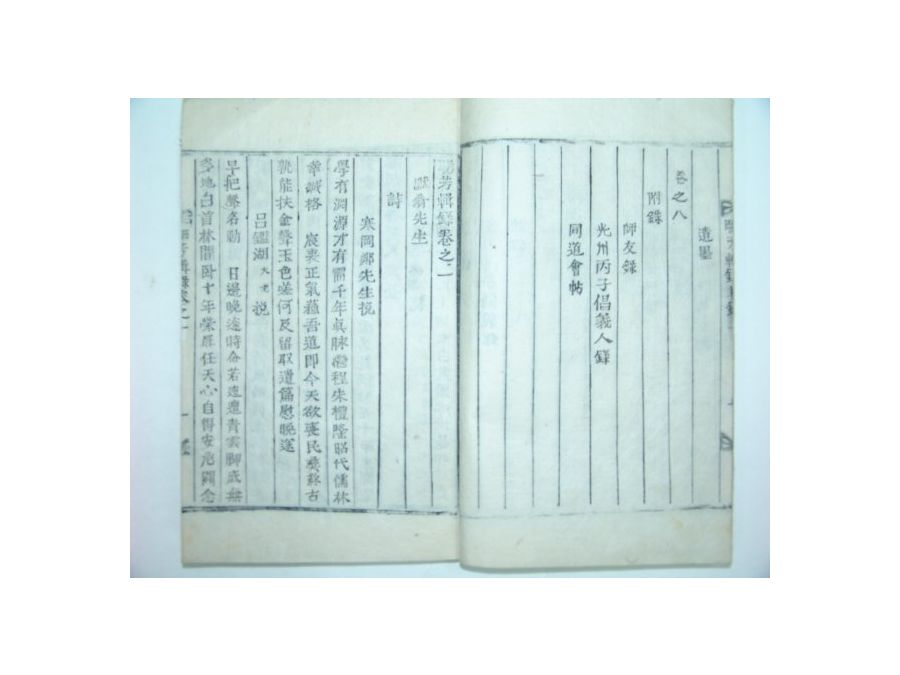 遺墨
卷之八
附錄
師友錄
光州丙子倡義人錄
同道會帖
芳輯錄卷之一
先生
詩
寒岡鄭先生挽
學有淵源才有需千年眞脉程朱禮隆昭代儒林
誠格宸衷正氣蘊吾道即今天欲喪民蘇古
就能扶金聲玉色嗟何及留取遺篇慰晩途
呂鑑湖大老挽
早把聲名動日邊晩途時命若迍邅青雲脚底無
地白首林間臥十年榮任天心自得安危關念